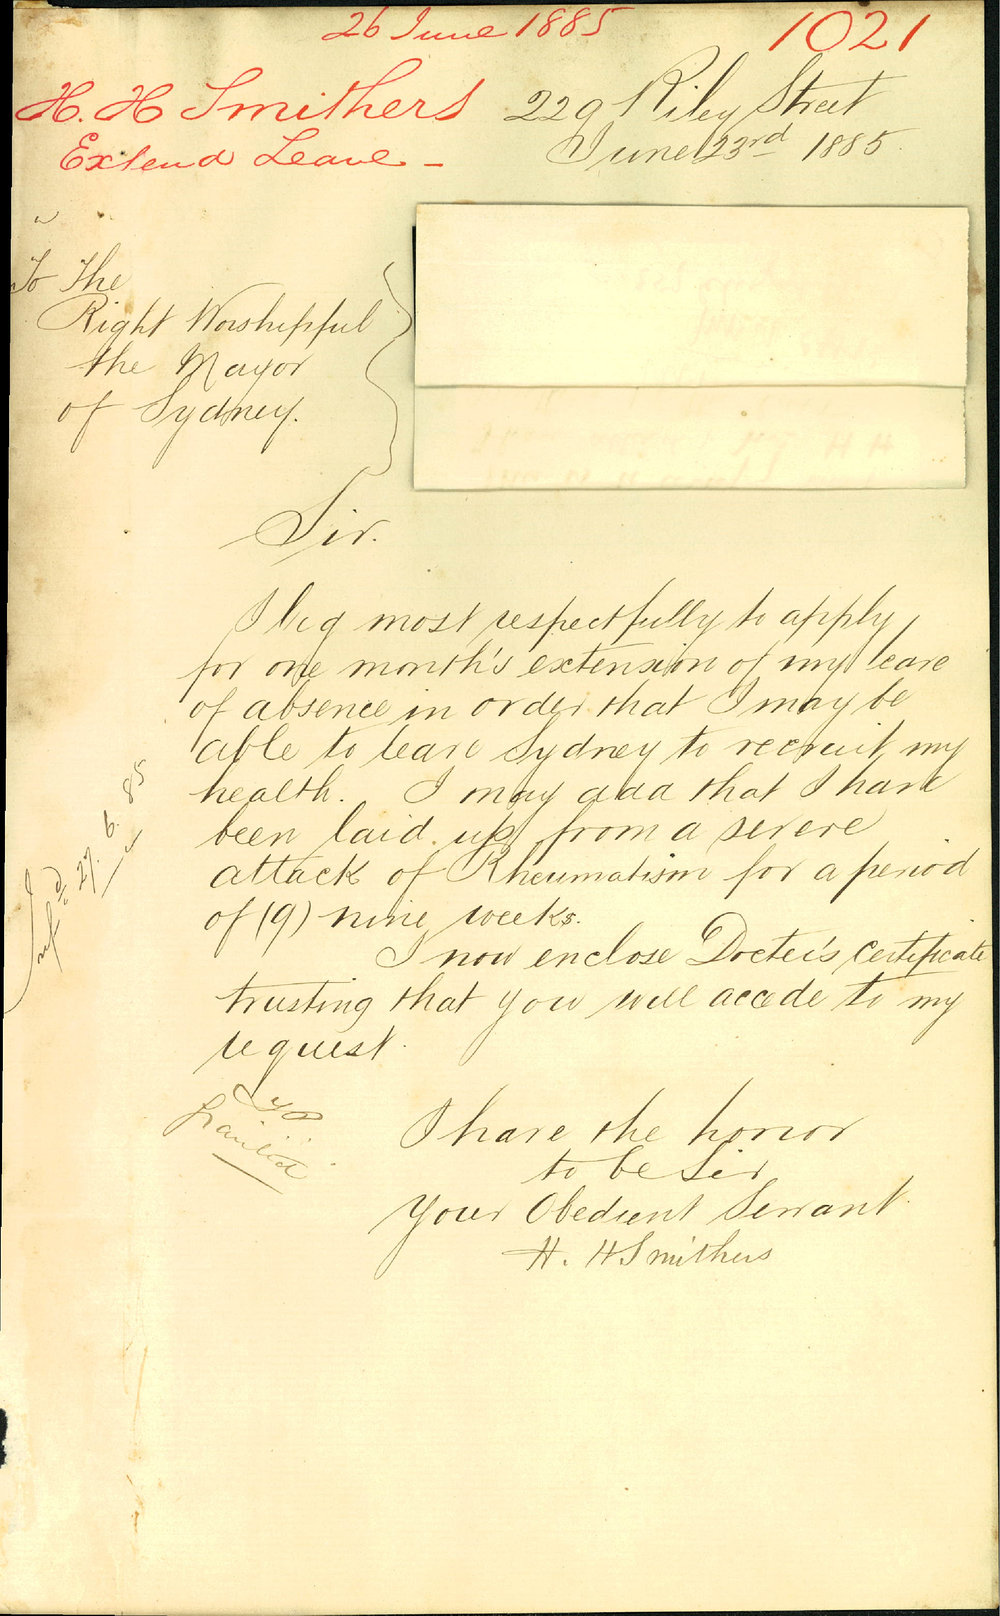 26 June 1885
1021
H. H Smithers
Extend Leave -
229 Riley Street
June 23rd 1885
To The
Right Worshipful
the Mayor
of Sydney.
Sir.
I beg most respectfully to apply
for one month's extension of my leave
of absence in order that I may be
able to leave Sydney to recruit my
health. I may add that I have
been laid up from a severe
attack of Rheumatism for a period
of (9) nine weeks.
I now enclose Docter's certificate
trusting that you will accede to my
request.
I have the honor
to be Sir
Your Obedient Servant
H. H Smithers
27. 6. 85